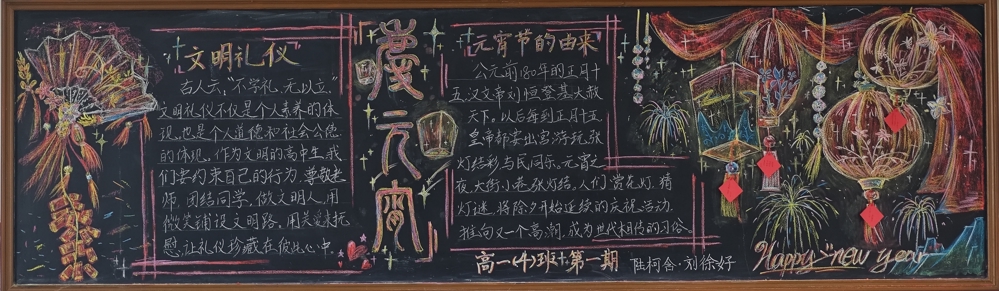 文明礼仪
古人云，“不学礼，无以立”
文明礼仪不仅是个人素养的体
现，也是个人道德和社会公德
的体现。作为文明的高中生，我
们要约束自己的行为，尊敬老
师，团结同学，做文明人，用
微笑铺设文明路，用关爱来抚
慰，让礼仪珍藏在彼此心中。
庆元宵
元宵节的由来
公元前180年的正月十
五，汉文帝刘恒登基大赦
天下。以后每到正月十五
皇帝都要出宫游玩，张
灯结彩与民同乐。元宵之
夜，大街小巷张灯结，人们赏花灯，猜
灯谜，将除夕开始延续的庆祝活动
推向又一个高潮，成为世代相传的习俗。
高一(4)班 第一期
陆柯含·刘徐好
Happy new year